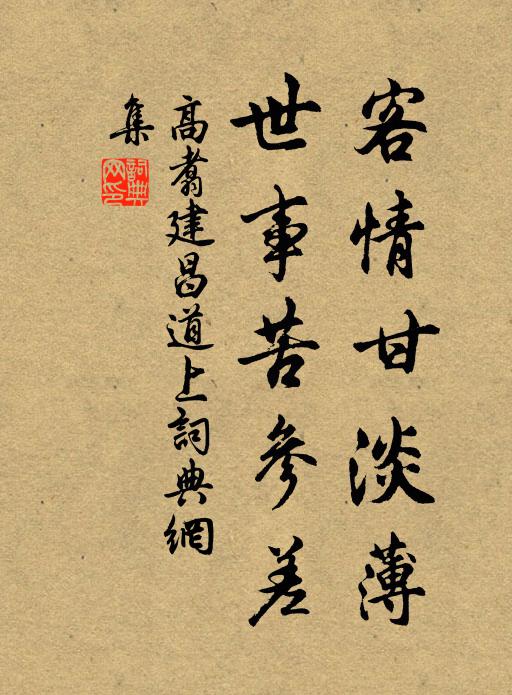 客情甘淡薄
世事苦參差
高翥建昌道上詞典網
集
詞典
网印